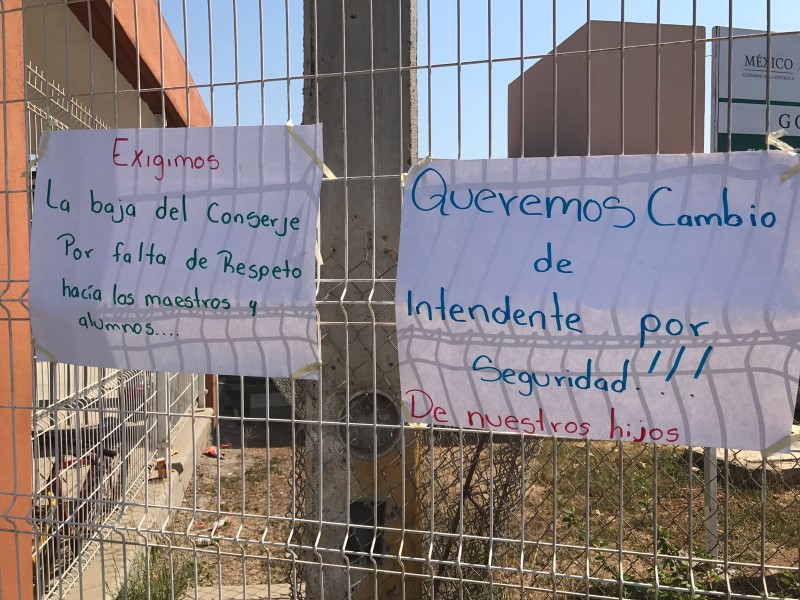 Exigimos
La baja del Conserje
Por falta de Respeto
hacía los maestros y
alumnos....
Queremos Cambio
de
Intendente por
Seguridad.!!!
De nuestros hijos
MÉXICO
GO